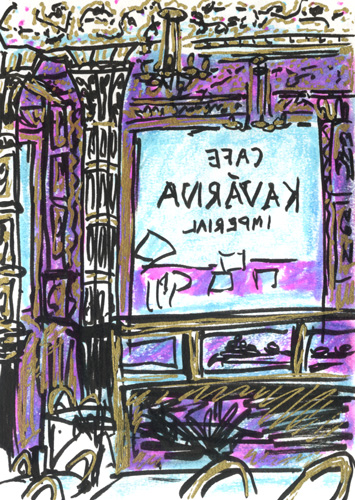 CAFE
KAVÁRNA
IMPERIAL